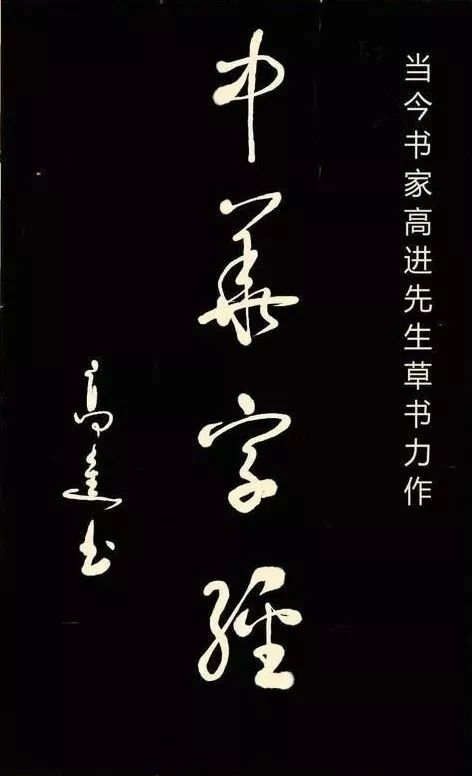 当今书家高进先生草书力作
中华字經
高進书